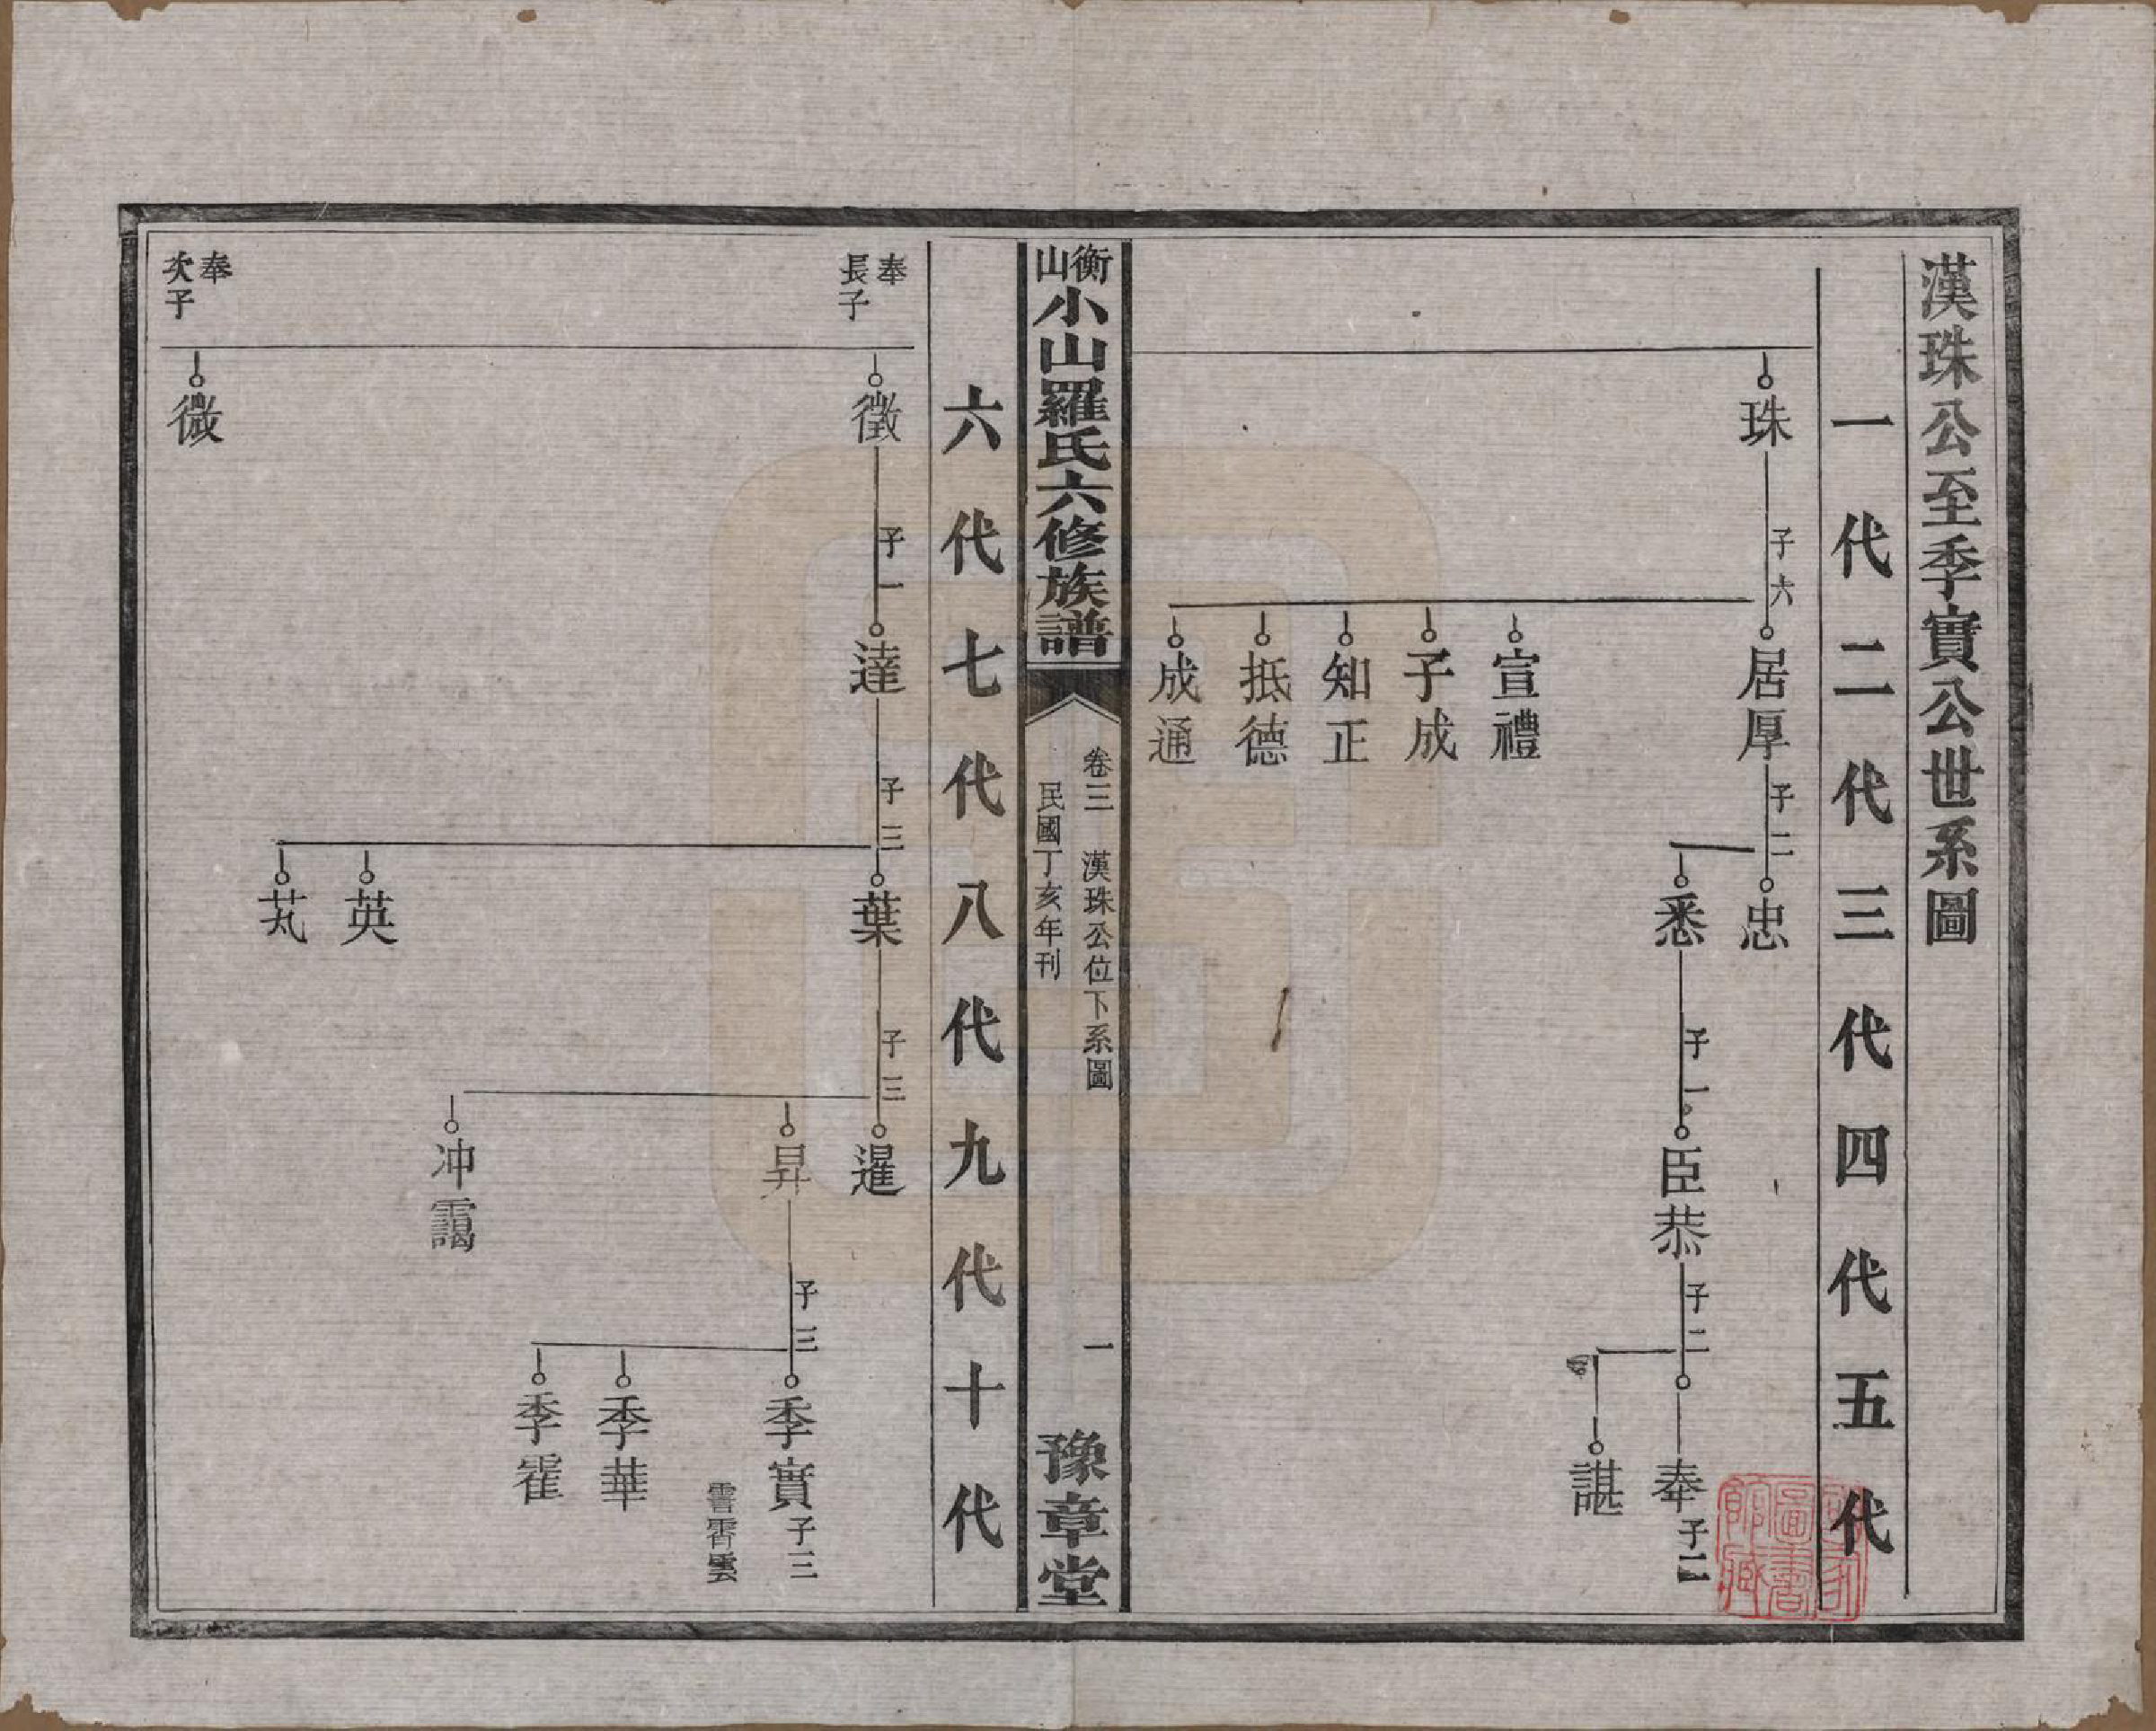 漢珠公至季實公世系圖
一代二代三代四代五代
珠
子六
居厚
宣禮
子成
知正
抵德
成通
子二
忠
悉
子一
臣恭
子二
奉
子二
諶
衡山小山羅氏六修族譜
卷三 漢珠公位下系圖
民國丁亥年刊
一
豫章堂
六代七代八代九代十代
奉長子
徵
子一
達
子三
葉
英
子三
暹
昇
冲靄
子三
季實
子三
霄雲
季華
季霍
奉次子
微